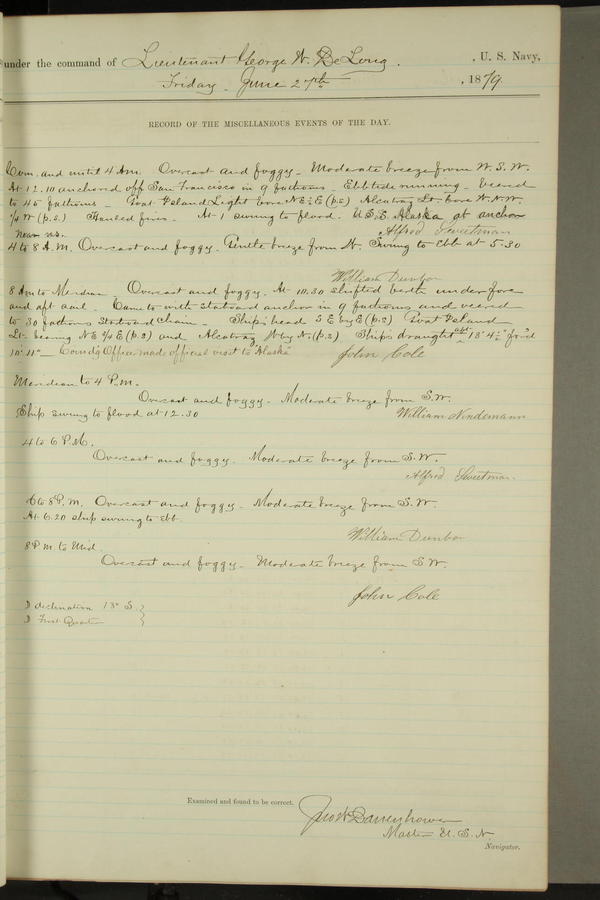 under the command of Lieutenant George W. De Long. , U. S. Navy,
Friday June 27th , 1879.
RECORD OF THE MISCELLANEOUS EVENTS OF THE DAY.
Com. and until 4 A.M. Overcast and foggy. Moderate breeze from W.S.W.
At 12.10 anchored off San Francisco in 9 fathoms. Ebb tide running. Veered
to 45 fathoms. Goat Island Light bore N E ½ E (p.c) Alcatraz Lt. bore W.N.W.
¼ W (p.c.) Hauled fires. At 1 swung to flood. U.S.S. Alaska at anchor
near us. Alfred Sweetman
4 to 8 A.M. Overcast and foggy. Gentle breeze from W. Swung to Ebb at 5.30
William Dunbar
8 Am to Meridian Overcast and foggy. At 10.30 shifted berth under fore
and aft sail. Came to with starboard anchor in 9 fathoms and veered
to 30 fathoms starboard chain. Ship's head S E by E (p.c) Goat Island
Lt. bearing N E ¼ E (p.c) and Alcatraz W by N. (p.c) Ship's draught aft 13' 4" for'd
10' 11" Comd'g Officer made official visit to Alaska John Cole
Meridian to 4 P.m.
Overcast and foggy. Moderate breeze from S.W.
Ship swung to flood at 12.30 William Nindemann
4 to 6 P.M.
Overcast and foggy. Moderate breeze from S.W.
Alfred Sweetman.
6 to 8 P.M. Overcast and foggy. Moderate breeze from S.W.
At 6.20 ship swung to ebb.
William Dunbar
8 P.m. to Mid.
Overcast and foggy. Moderate breeze from S.W.
John Cole
☽ declination 13° S.
☽ First Quarter
Examined and found to be correct.
Jno W Danenhower
Master U.S.N.
Navigator.